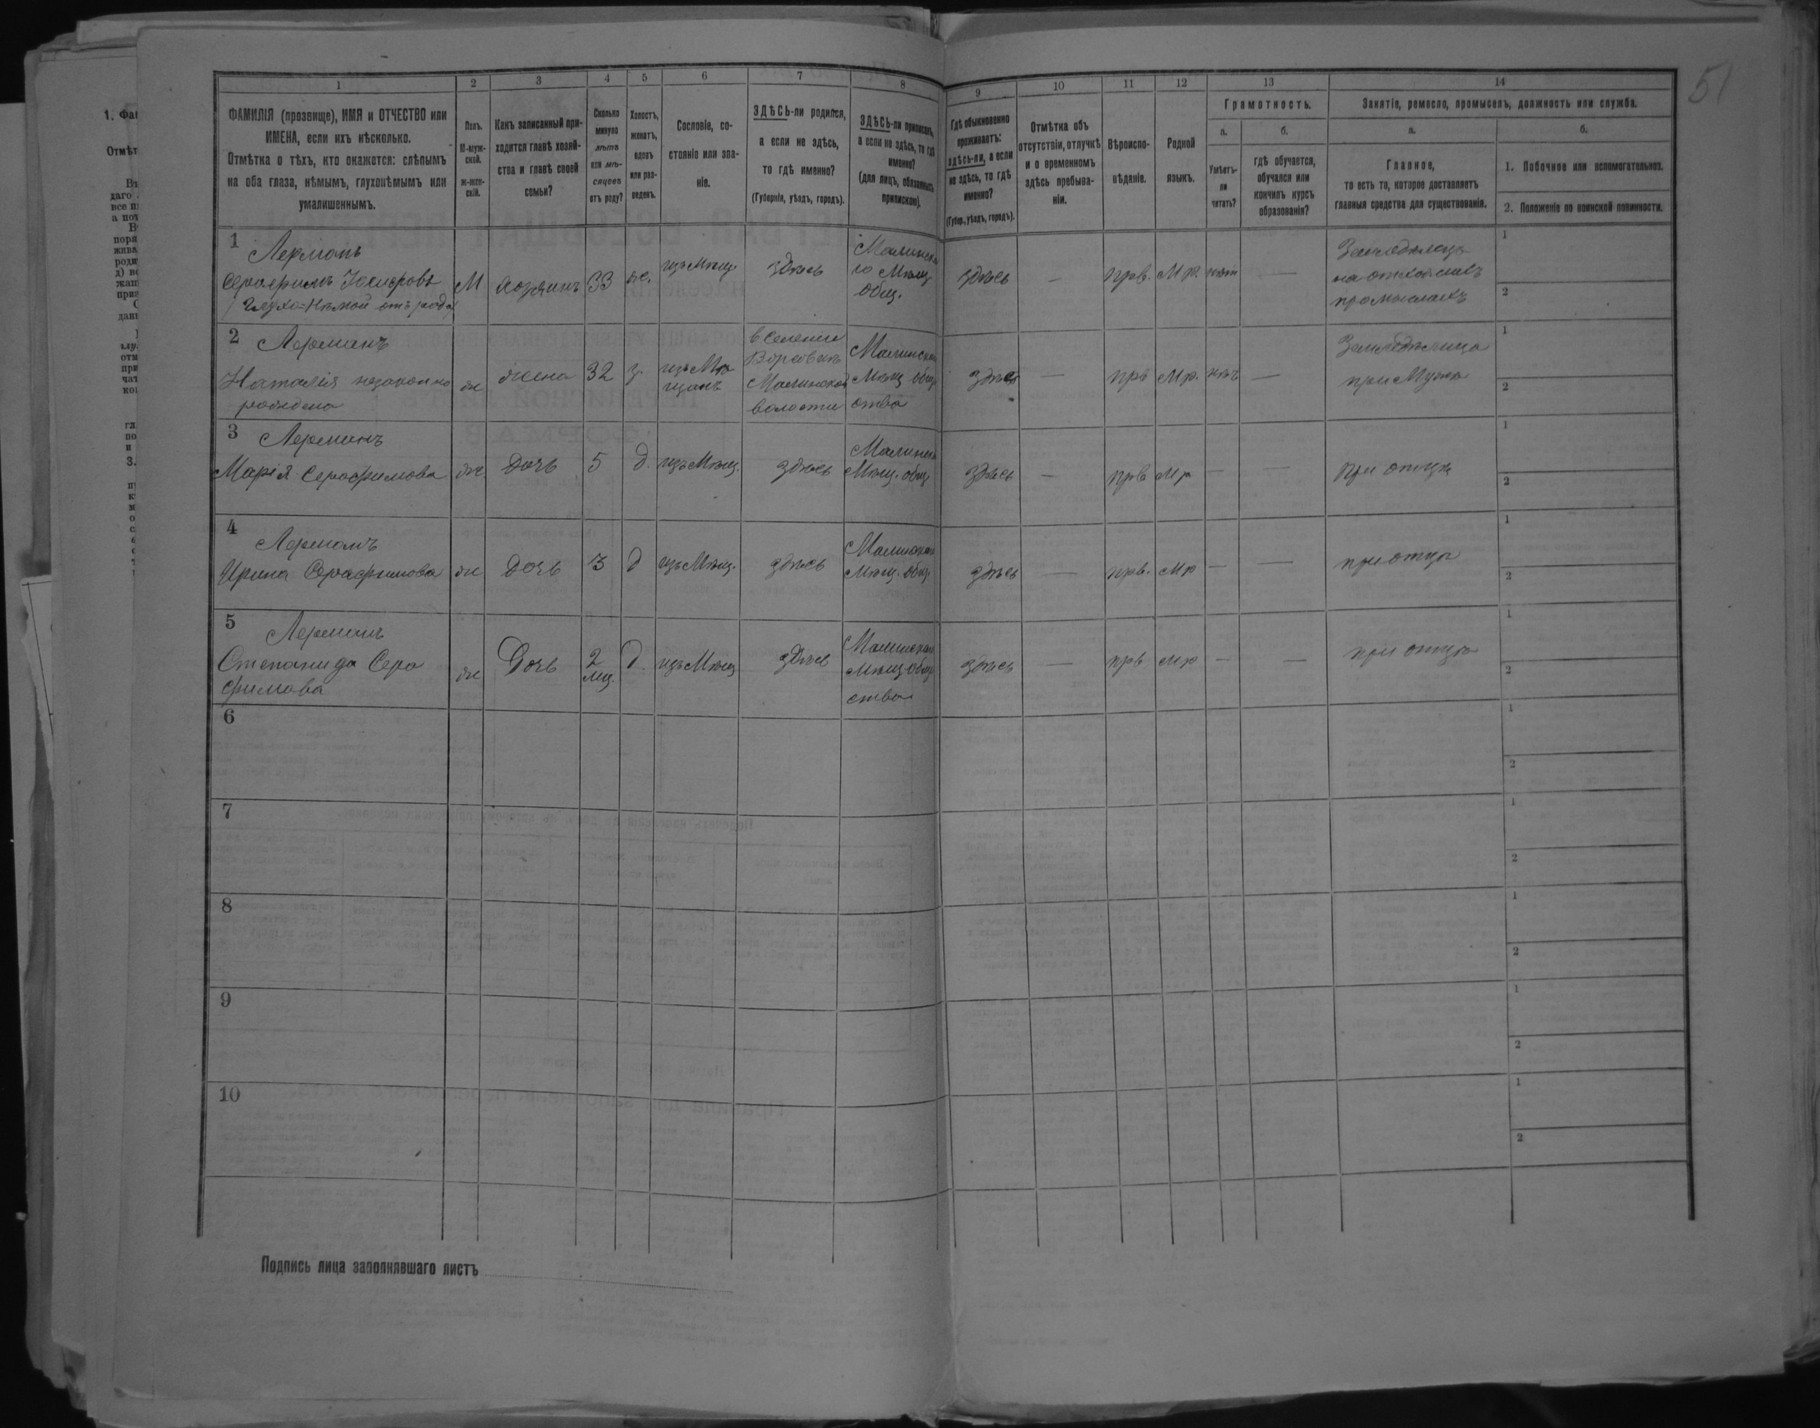 51
1 2 3 4 5 6 7 8 9 10 11 12 13 14
ФАМИЛІЯ (прозвище), ИМЯ и ОТЧЕСТВО или
ИМЕНА, если ихъ нѣсколько.
Отмѣтка о тѣхъ, кто окажется: слѣпымъ
на оба глаза, нѣмымъ, глухонѣмымъ или
умалишеннымъ.
Полъ.
М-муж-
ской.
ж-жен-
скій.
Какъ записанный при-
ходится главѣ хозяй-
ства и главѣ своей
семьи?
Сколько
минуло
лѣтъ
или мѣ-
сяцевъ
отъ роду?
Холостъ,
женатъ,
вдовъ
или раз-
веденъ.
Сословіе, со-
стояніе или зва-
ніе.
ЗДѢСЬ-ли родился,
а если не здѣсь,
то гдѣ именно?
(Губернія, уѣздъ, городъ).
ЗДѢСЬ-ли приписанъ,
а если не здѣсь, то гдѣ
именно?
(для лицъ, обязанныхъ
припискою).
Гдѣ обыкновенно
проживаетъ:
здѣсь-ли, а если
не здѣсь, то гдѣ
именно?
(Губер., уѣздъ, городъ).
Отмѣтка объ
отсутствіи, отлучкѣ
и о временномъ
здѣсь пребыва-
ніи.
Вѣроиспо-
вѣданіе.
Родной
языкъ.
Грамотность.
а.
Умѣетъ-
ли
читать?
б.
гдѣ обучается,
обучался или
кончилъ курсъ
образованія?
Занятіе, ремесло, промыселъ, должность или служба.
а.
Главное,
то есть то, которое доставляетъ
главныя средства для существованія.
б.
1. Побочное или вспомогательное.
2. Положеніе по воинской повинности.
1
Лерманъ
Серафимъ
Глухо-Нѣмой отъ рода
М
хозяинъ
33
ж.
изъ Мѣщ.
здѣсь
Малинска
го Мѣщ
общ.
здѣсь
—
прав.
М р.
нѣт
—
на отхожихъ
промыслахъ
1
2
2
Лерманъ
Наталія незаконно
рождена
ж
жена
32
з.
изъ Мѣ
щанъ
в Селении
Малинской
волости
Малинскаго
Мѣщ общ
ства
здѣсь
—
прв
М р.
нѣтъ
—
при Мужѣ
1
2
3
Лерманъ
Марія Серафимова
ж
Дочь
5
д.
изъ Мѣщ.
здѣсь
Малинска
Мѣщ. общ.
здѣсь
—
прв
М р
—
—
При отцѣ
1
2
4
Лерманъ
Ирина Серафимова
ж
Дочь
3
д
изъ Мѣщ.
здѣсь
Малинска
Мѣщ. общ.
здѣсь
—
прв.
М р
—
—
при отцѣ
1
2
5
Лерманъ
Степанида Сера
фимова
ж
Дочь
2
мц.
д.
изъ Мѣщ
здѣсь
Малинска
Мѣщ. обще
ства
здѣсь
—
прв
М р
—
—
при отцѣ
1
2
6
1
2
7
1
2
8
1
2
9
1
2
10
1
2
Подпись лица заполнявшаго листъ